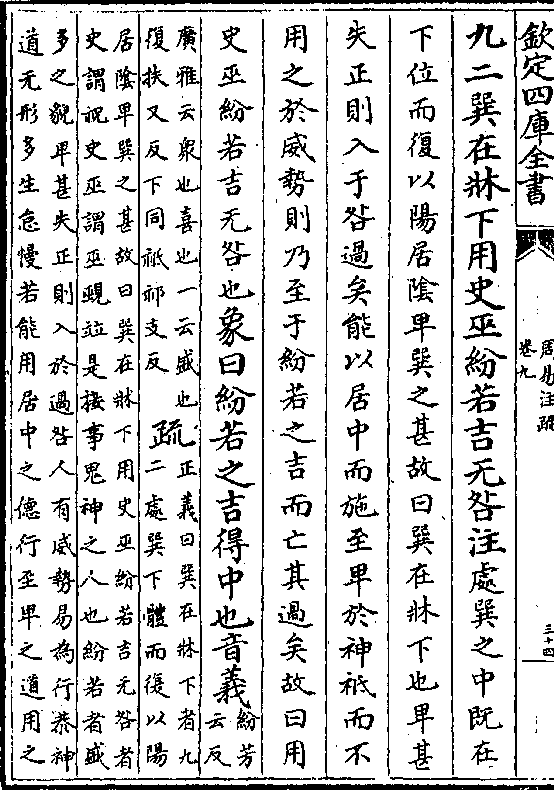 欽定四庫全書
周易注疏
卷九
三十四
九二巽在牀下用史巫紛若吉无咎注處巽之中既在
下位而復以陽居陰卑巽之甚故曰巽在牀下也卑甚
失正則入于咎過矣能以居中而施至卑於神祇而不
用之於威勢則乃至于紛若之吉而亡其過矣故曰用
史巫紛若吉无咎也象曰紛若之吉得中也音義紛芳
云反
廣雅云衆也喜也一云盛也
復扶又反下同祇祁支反
疏正義曰巽在牀下者九
二處巽下體而復以陽
居陰卑巽之甚故曰巽在牀下用史巫紛若吉无咎者
史謂祝史巫謂巫覡竝是接事鬼神之人也紛若者盛
多之貌卑甚失正則入於過咎人有威勢易為行恭神
道无形多生怠慢若能用居中之德行至卑之道用之